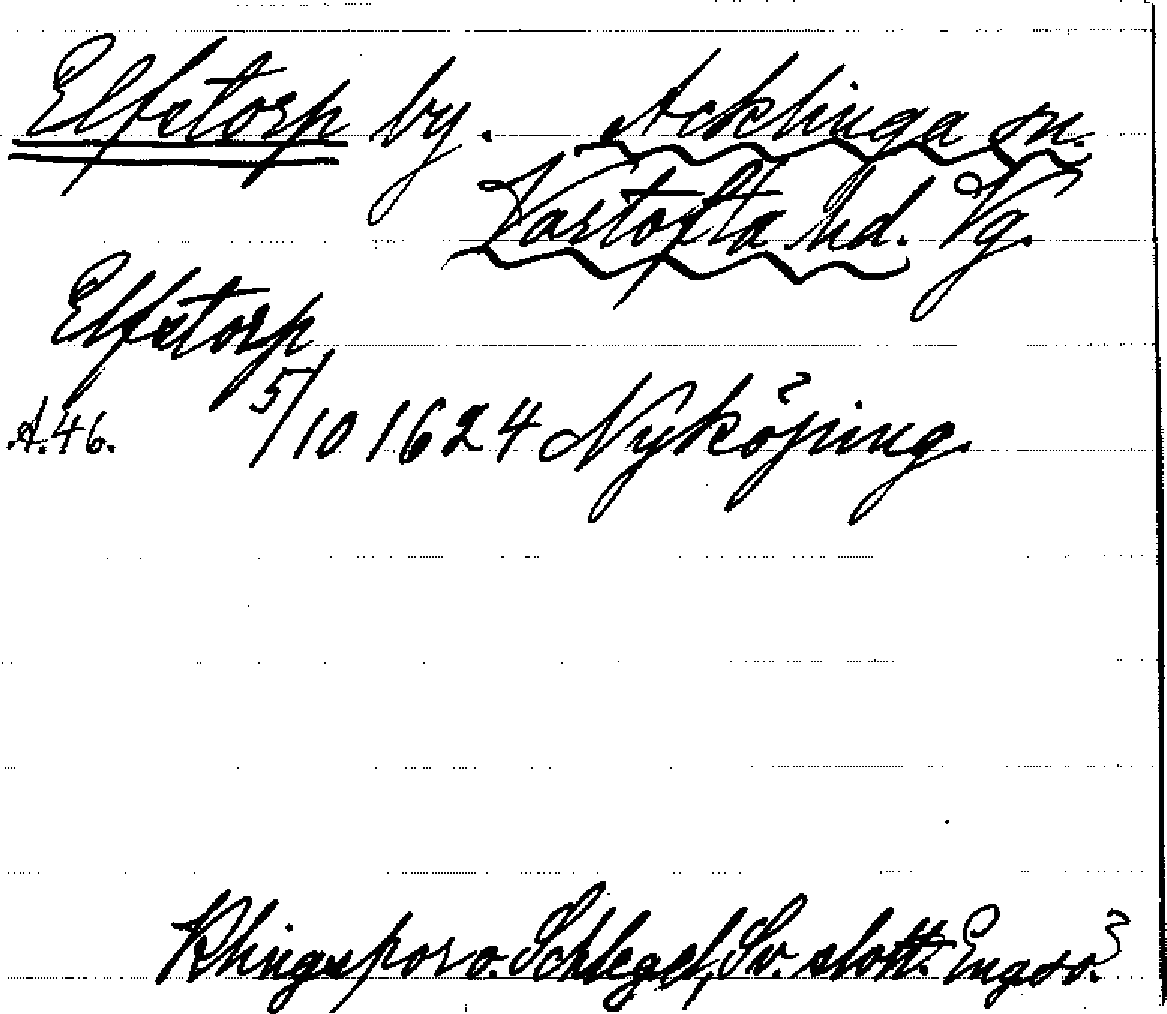 Elfetorp by. Acklinga sn.
Vartofta hd. Vg.
Elfetorp
A.46. 5/10 1624 Nyköping.
Klingspor o. Schlegel, Sv. slott. Engsö.